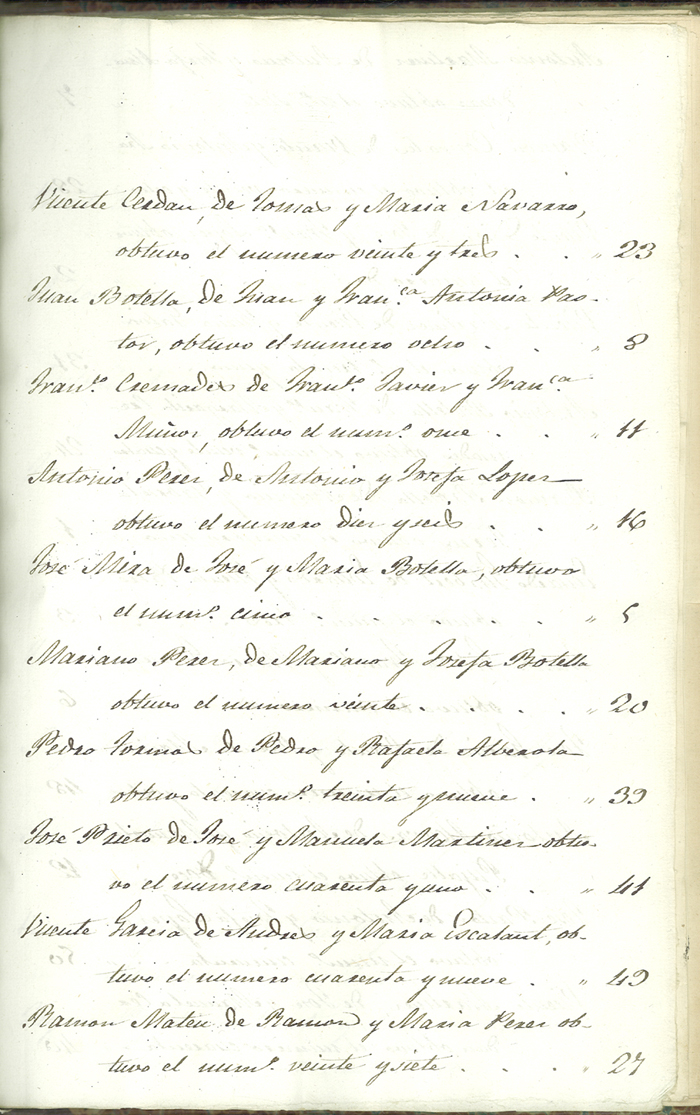 Vicente Cerdan, de Tomas y Maria Navarro,
obtuvo el numero veinte y tres . . " 23
Juan Botella, de Juan y Fran.ca Antonia Pas-
tor, obtuvo el numero ocho . . " 8
Fran.co Cremades de Fran.co Javier y Fran.ca
Muñoz, obtuvo el num.o once . . " 11
Antonio Perez, de Antonio y Josefa Lopez
obtuvo el numero diez y seis . . " 16
José Mira de José y Maria Botella, obtuvo
el num.o cinco . . . . . " 5
Mariano Perez, de Mariano y Josefa Botella
obtuvo el numero veinte . . . . " 20
Pedro Tormos de Pedro y Rafaela Alberola
obtuvo el num.o treinta y nueve . " 39
José Prieto de José y Manuela Martinez obtu-
vo el numero cuarenta y uno . . " 41
Vicente Garcia de Andres y Maria Escalant, ob-
tuvo el numero cuarenta y nueve . " 49
Ramon Mateu de Ramon y Maria Perez ob-
tuvo el num.o veinte y siete . . . " 27